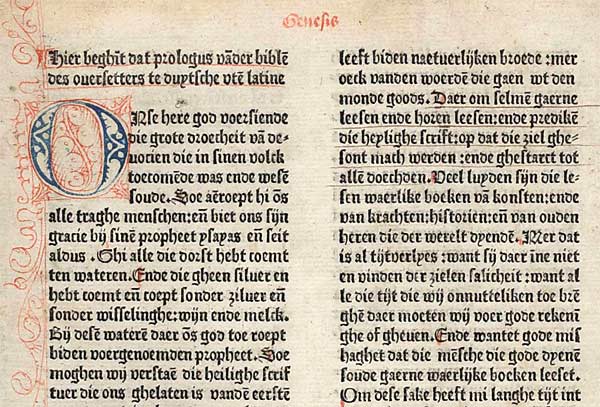 Genesis
Hier beghīt dat prologus vāder biblē
des oversetters te duytsche vtē latine
Onse here god voersiende
die grote droerheit vā de-
uocien die in sinen volck
toecomēde was ende wesē
soude. Soe aēroept hi ōs
alle traghe menschen: eñ biet ons sijn
gracie bij sinē propheet ysayas eñ seit
aldus . Ghi alle die dorst hebt coemt
ten wateren. Ende die gheen siluer en
hebt coemt eñ coept sonder ziluer eñ
sonder wisselinghe: wijn ende melck.
Bij desē waterē daer ōs god toe roept
biden voergenoemden propheet. Soe
moghen wij verstaē die heilighe scrif
tuer die ons ghelaten is vandē eerstē
leeft biden naetuerlijken broede : mer
oeck vanden woerdē die gaen wt den
monde goods. Daer om selmē gaerne
leesen ende horen leesen: ende predikē
die heylighe scrift: op dat die ziel ghe-
sont mach werden : ende ghestarct tot
allē doechden. Veel luyden sijn die le-
sen waerlike boecken vā konsten: ende
van krachten: historien: eñ van ouden
heren die der werelt dyendē. Mer dat
is al tijtverlyes : want sij daer īne niet
en vinden der zielen salicheit : want al
le die tijt die wij onnutteliken toe brē
ghē daer moeten wij voer gode rekenī
ghe of gheuen. Ende wantet gode mis
haghet dat die mēsche die gode dyenē
soude gaerne waerlike boecken leeset.
Om dese sake heeft mi langhe tijt int